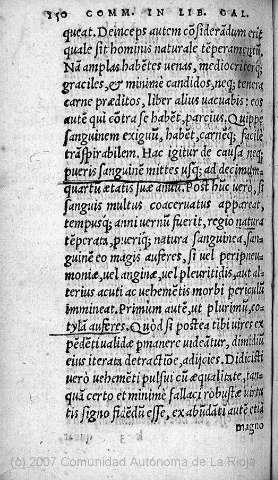 150 COMM. IN LIB. GAL.
queat. Deinceps autem cōsiderādum erit
quale sit hominis naturale tēperamentū.
Nā amplas habētes uenas, mediocriterq;
graciles, & minimè candidos, neq; tenera
carne præditos, liber alius uacuabis: eos
autē qui cōtra se habēt, parcius. Quippe
sanguinem exiguū, habēt, carnēq; facilè
trāspirabilem. Hac igitur de causa neq;
pueris sanguinē mittes usq; ad decimum
quartū ætatis suæ annū. Post huc uerò, si
sanguis multus coaceruatus appareat,
tempusq; anni uernū fuerit, regio natura
tēperata, pueriq; natura sanguinea, san-
guinē eo magis auferes, si uel peripneu-
moniæ, uel anginæ, uel pleuritidis, aut al-
terius acuti ac uehemētis morbi periculū
immineat. Primum autē, ut plurimū, co-
tylā auferes. Quòd si postea tibi uires ex
pēdēti ualidæ pmanere uideātur, dimidiū
eius iterata detractiōe, adijcies. Didicisti
uerò uehemēti pulsui cū æqualitate, tan-
quā certo et minimè fallaci robustæ uirtu
tis signo fidēdū esse, ex abūdāti autē etiā
magno
(c) 2007 Comunidad Autónoma de La Rioja